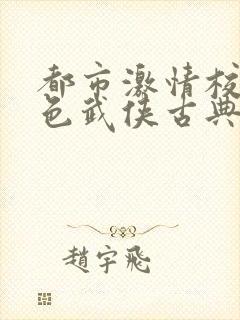 都市激情校
色武侠古典
趙宇飛